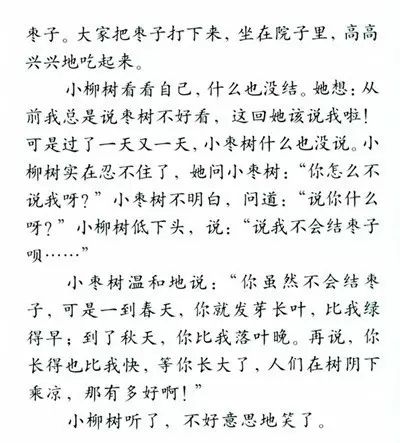 枣子。大家把枣子打下来，坐在院子里，高高
兴兴地吃起来。
小柳树看看自己，什么也没结。她想：从
前我总是说枣树不好看，这回她该说我啦！
可是过了一天又一天，小枣树什么也没说。小
柳树实在忍不住了，她问小枣树：“你怎么不
说我呀？”小枣树不明白，问道：“说你什么
呀？”小柳树低下头，说：“说我不会结枣子
呗……”
小枣树温和地说：“你虽然不会结枣
子，可是一到春天，你就发芽长叶，比我绿
得早；到了秋天，你比我落叶晚。再说，你
长得也比我快，等你长大了，人们在树阴下
乘凉，那有多好啊！”
小柳树听了，不好意思地笑了。